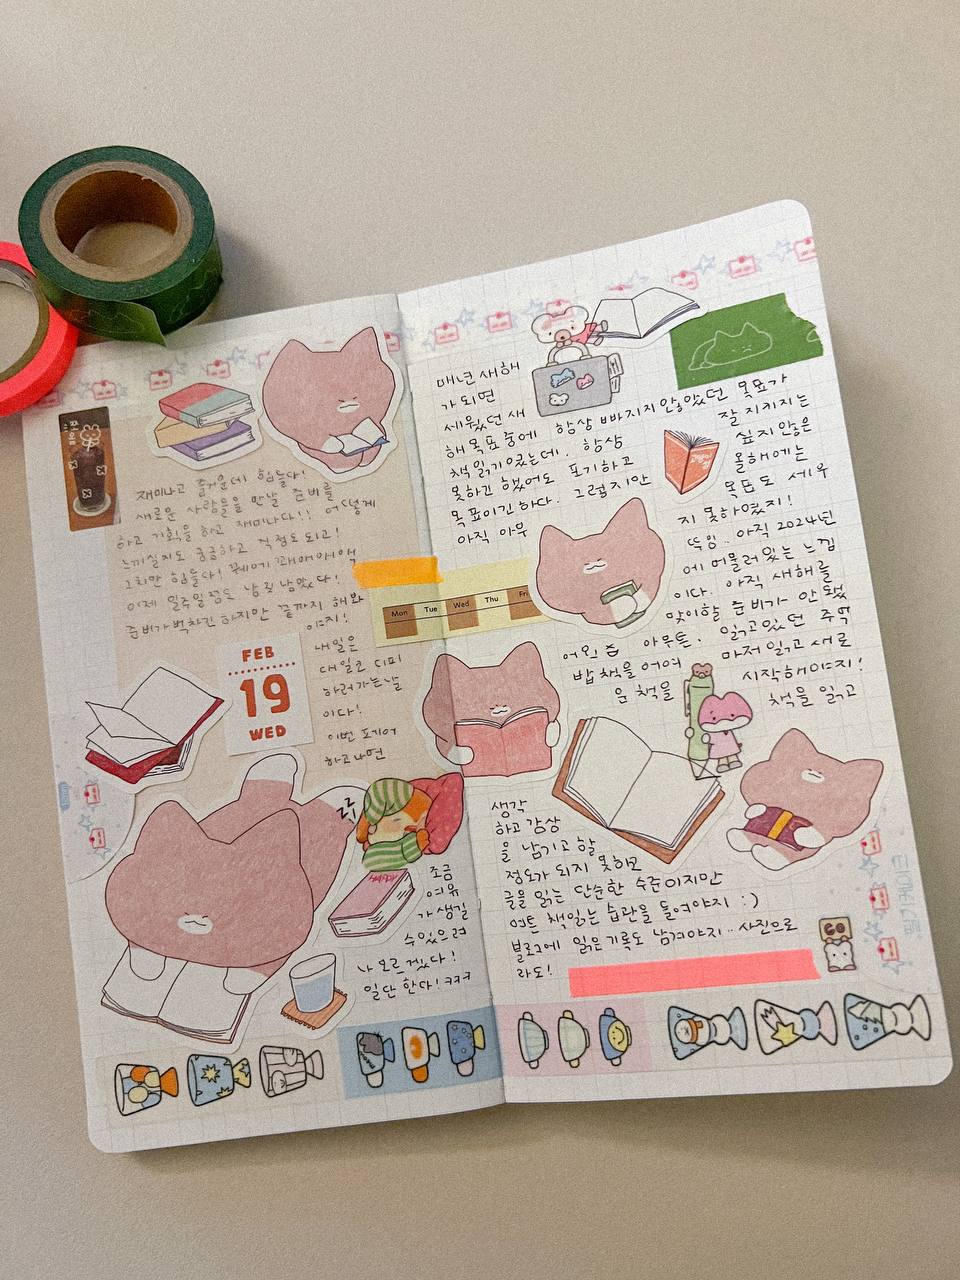 재미나고 즐거운데 힘들다!
새로운 사람들을 만날 준비를
하고 기획을 하고 재미나다!! 어떻게
느끼실지도 궁금하고 걱정도 되고!
그치만 힘들다!
이제 일주일정도 남았다!
준비가 벅차긴 하지만 끝까지 해봐
야지!
FEB
19
WED
내일은
하러가는날
이다!
이번
하고나면
zz
조금
여유
가 생길
수있으려
나 모르겠다!
일단 한다! ㅋㅋㅋ
Mon Tue Wed Thu Fri
매년 새해
가 되면
세웠던 새
해 목표중에 항상 빠지지않았던 목표가
책읽기였는데. 항상 잘 지키지는
못하긴 했어도 포기하고 싶지않은
목표이긴하다. 그렇지만 올해에는
아직 아무 목표도 세우
지 못하였지!
뜨잉.. 아직 2024년
에 머물러있는 느낌
이다. 아직 새해를
맞이할 준비가 안됐
어원 쥽 아무튼. 읽고있던 추억
밥 책을 어여 마저 읽고 새로
운 책을 시작해야지!
책을 읽고
생각
하고 감상
을 남기고 할
정도가 되지 못하고
글을 읽는 단순한 수준이지만
여튼 책읽는 습관을 들여야지 :)
블로그에 읽은기록도 남겨야지.. 사진으로
라도!